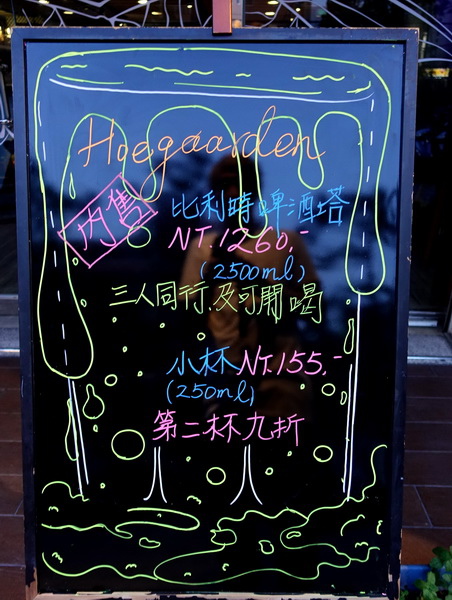 Hoegaarden
內售
比利時啤酒塔
NT.1260.-
(2500ml)
三人同行.及可開喝
小杯NT.155.-
(250ml)
第二杯九折